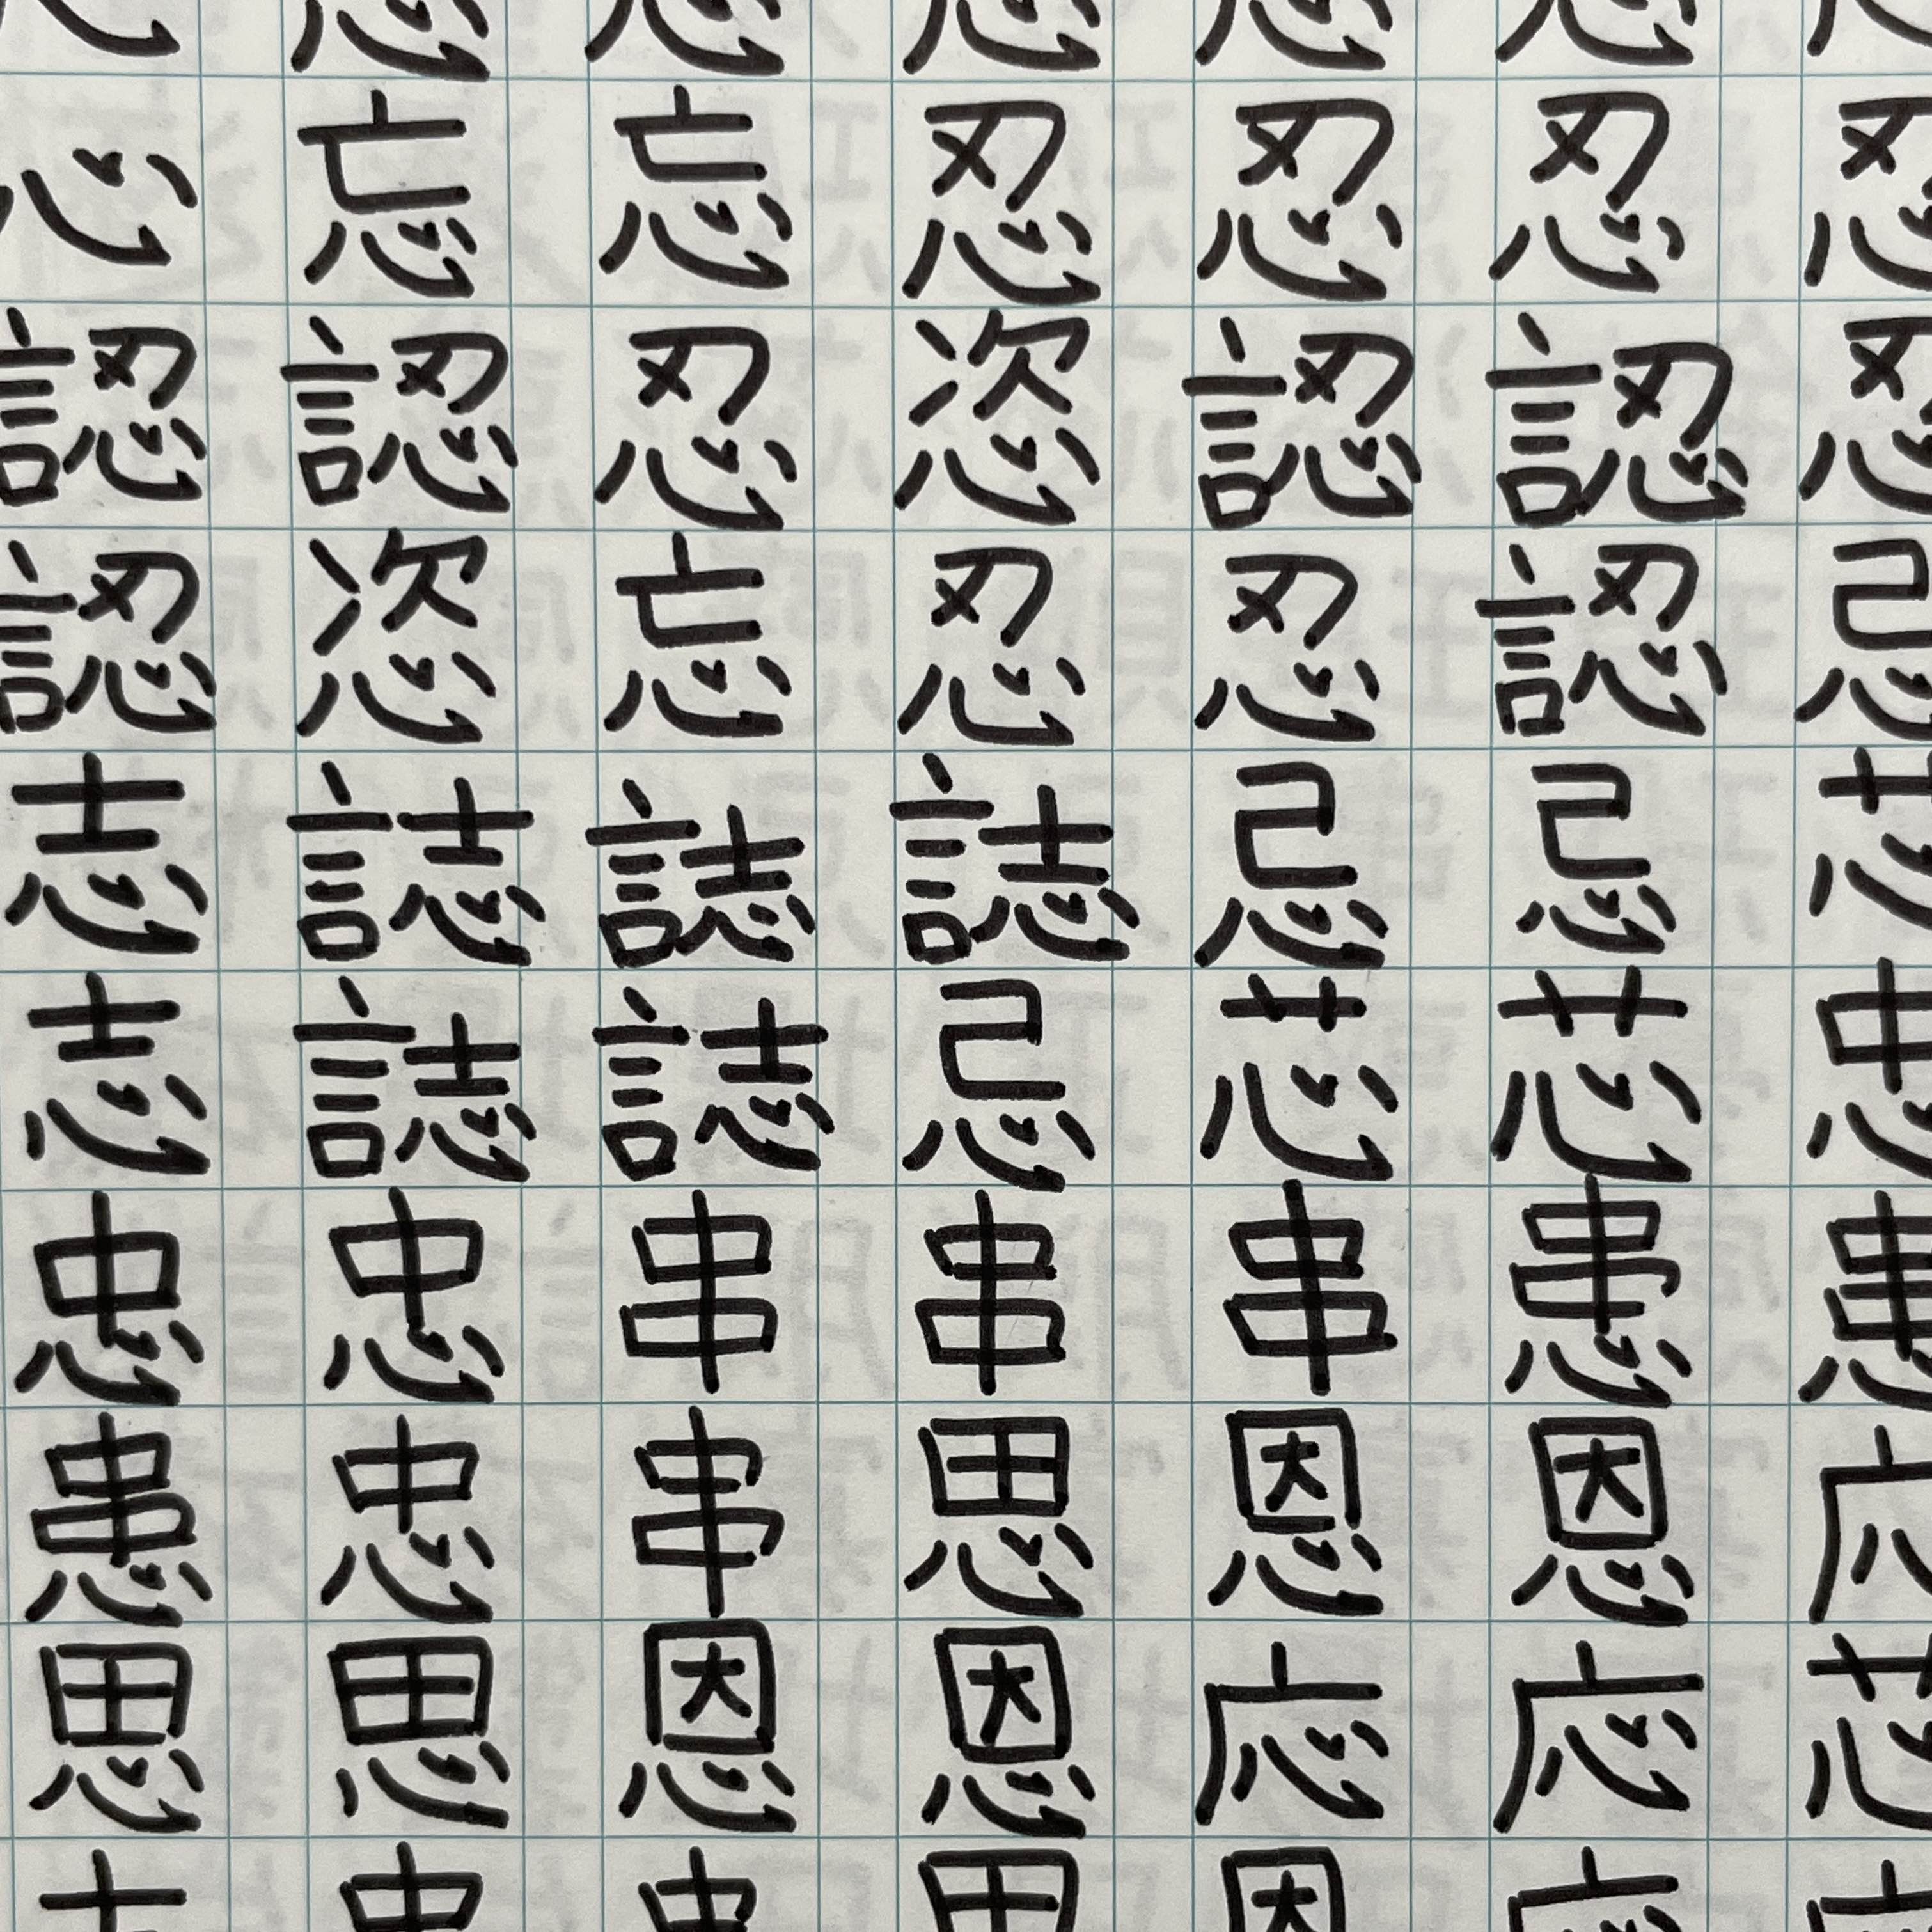 心忘忘忍忍忍忍
認認忍恣認認忍
認恣忘忍忍認忌
志誌誌誌忌忌芯
志誌誌忌芯芯忠
忠忠串串串患患
患忠串思恩恩応
思思恩恩応応芯